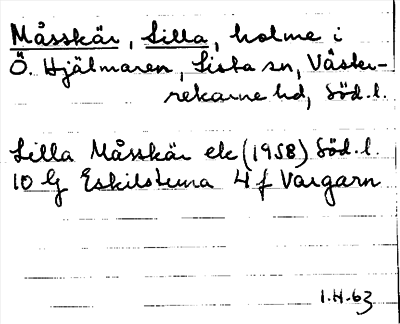 Måsskär, Lilla, holme i
Ö. Hjälmaren, Lista sn, Väster-
rekarne hd, Söd. l.
Lilla Måsskär ek (1958) Söd. l.
10 G Eskilstuna 4 f Vargarn
1.H.63